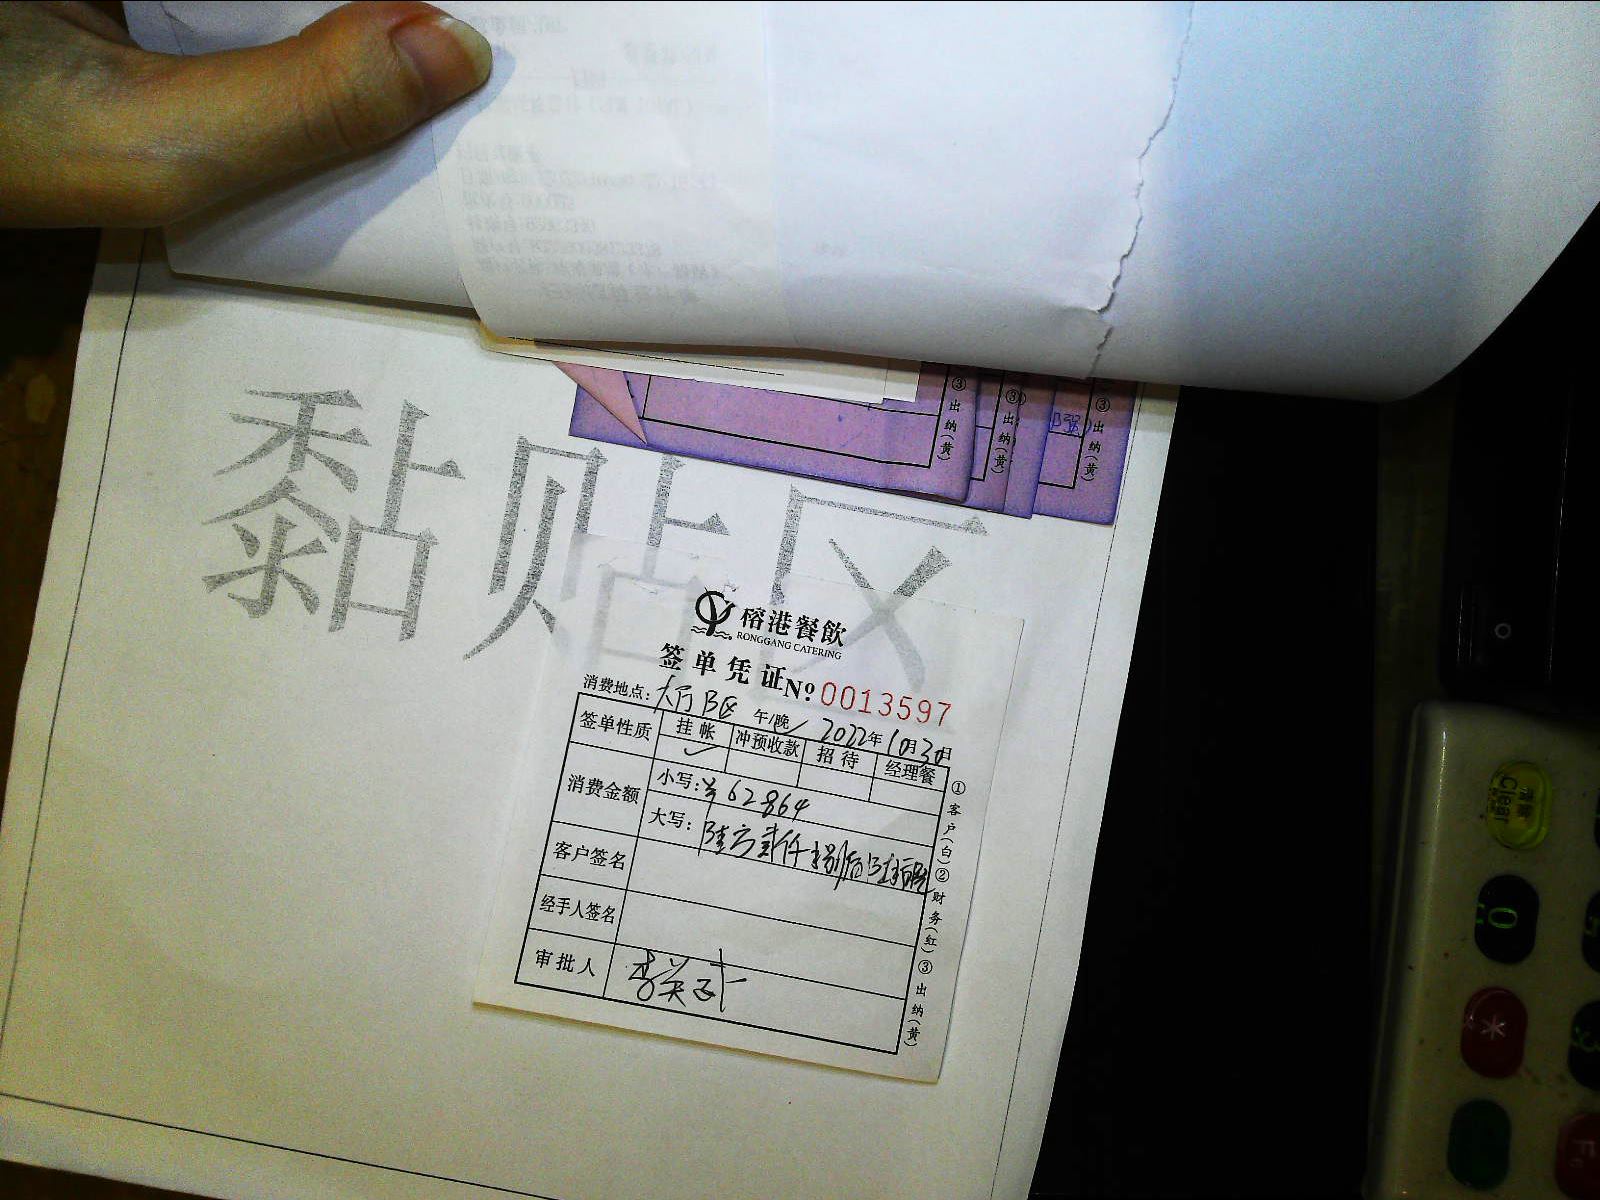 黏贴区
③出纳(黄)
③出纳(黄)
③出纳(黄)
榕港餐飲
RONGGANG CATERING
签单凭证 №0013597
消费地点：大厅B区 午/晚✓ 2022年10月30日
签单性质 挂帐 冲预收款 招待 经理餐
✓
消费金额 小写：¥62864
大写：陆万贰仟捌佰
客户签名
经手人签名
审批人
①客户(白)②财务(红)③出纳(黄)
清除
clear
0
*